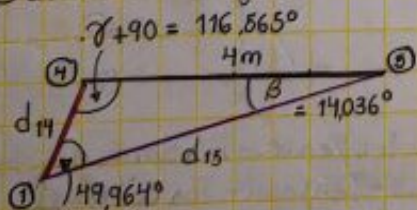 γ+90 = 116,565°
4m
④
⑤
β
= 14,036°
d14
d15
①
49,964°